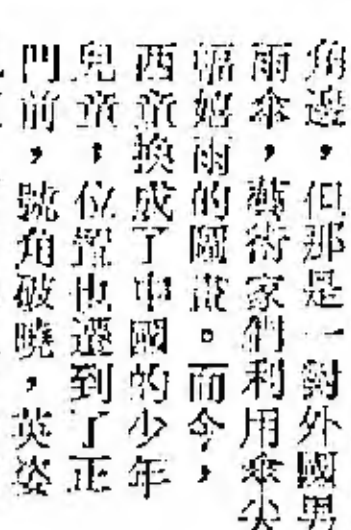 角邊，但那是一對外國男
雨傘，藝術家們利用傘尖
幅嬉雨的圖畫。而今，
西童換成了中國的少年
兒童，位置也遷到了正
門前，號角破曉，英姿